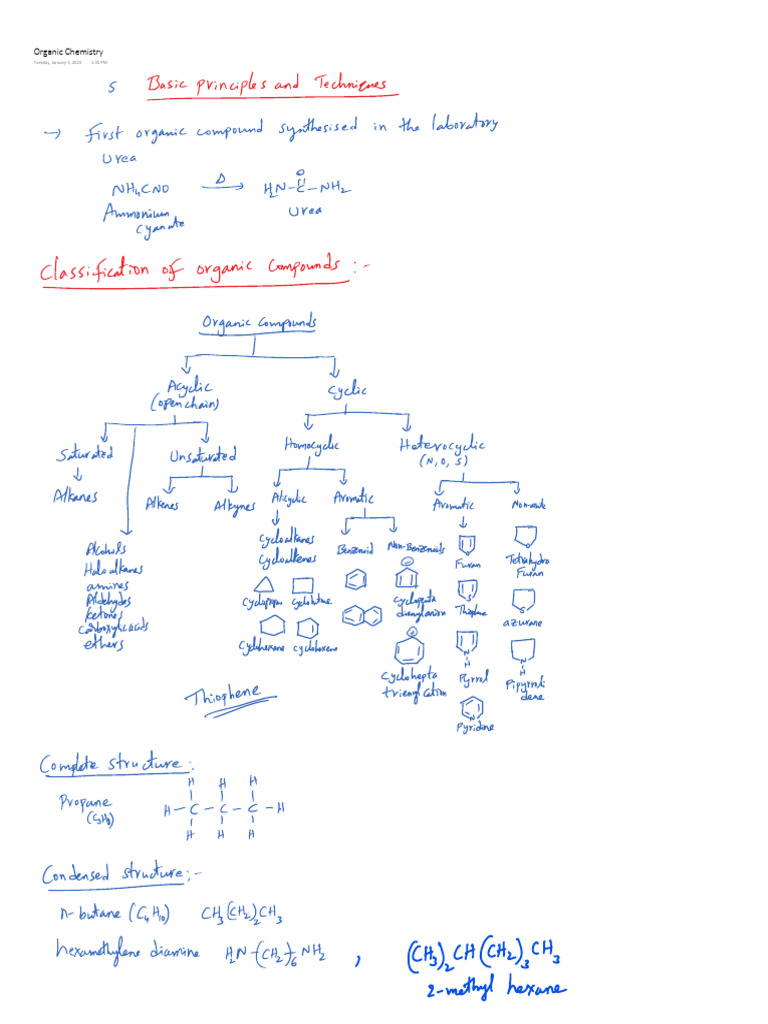 Organic Chemistry
Tuesday, January 3, 2023
5 Basic principles and Techniques
→ First organic compound synthesised in the laboratory
Urea
NH4CNO Δ→ H2N-C-NH2
O
Ammonium Cyanate
Urea
Classification of organic compounds :-
Organic compounds
Acyclic (open chain)
Cyclic
Saturated
Unsaturated
Homocyclic
Heterocyclic
(N, O, S)
Alkanes
Alkenes
Alkynes
Alicyclic
Aromatic
Aromatic
Alcohols
Haloalkanes
amines
Aldehydes
Ketones
Carboxylic acids
ethers
Cycloalkanes
Cycloalkenes
Benzenoid
Non-Benzenoids
Furan
Tetrahydro Furan
Cyclopropane
Cyclobutane
cyclopenta dienyl anion
Thiophene
S
azurane
Cyclohexane
cyclohexene
cyclohepta trienyl cation
N
H
Pyrrol
N
H
Pipyrroli dene
N
Pyridine
Thiophene
Complete structure :
Propane
(C3H8)
H H H
H - C - C - C - H
H H H
Condensed structure :-
n-butane (C4H10) CH3(CH2)2CH3
hexamethylene diamine H2N-(CH2)6NH2 , (CH3)2CH(CH2)3CH3
2-methyl hexane